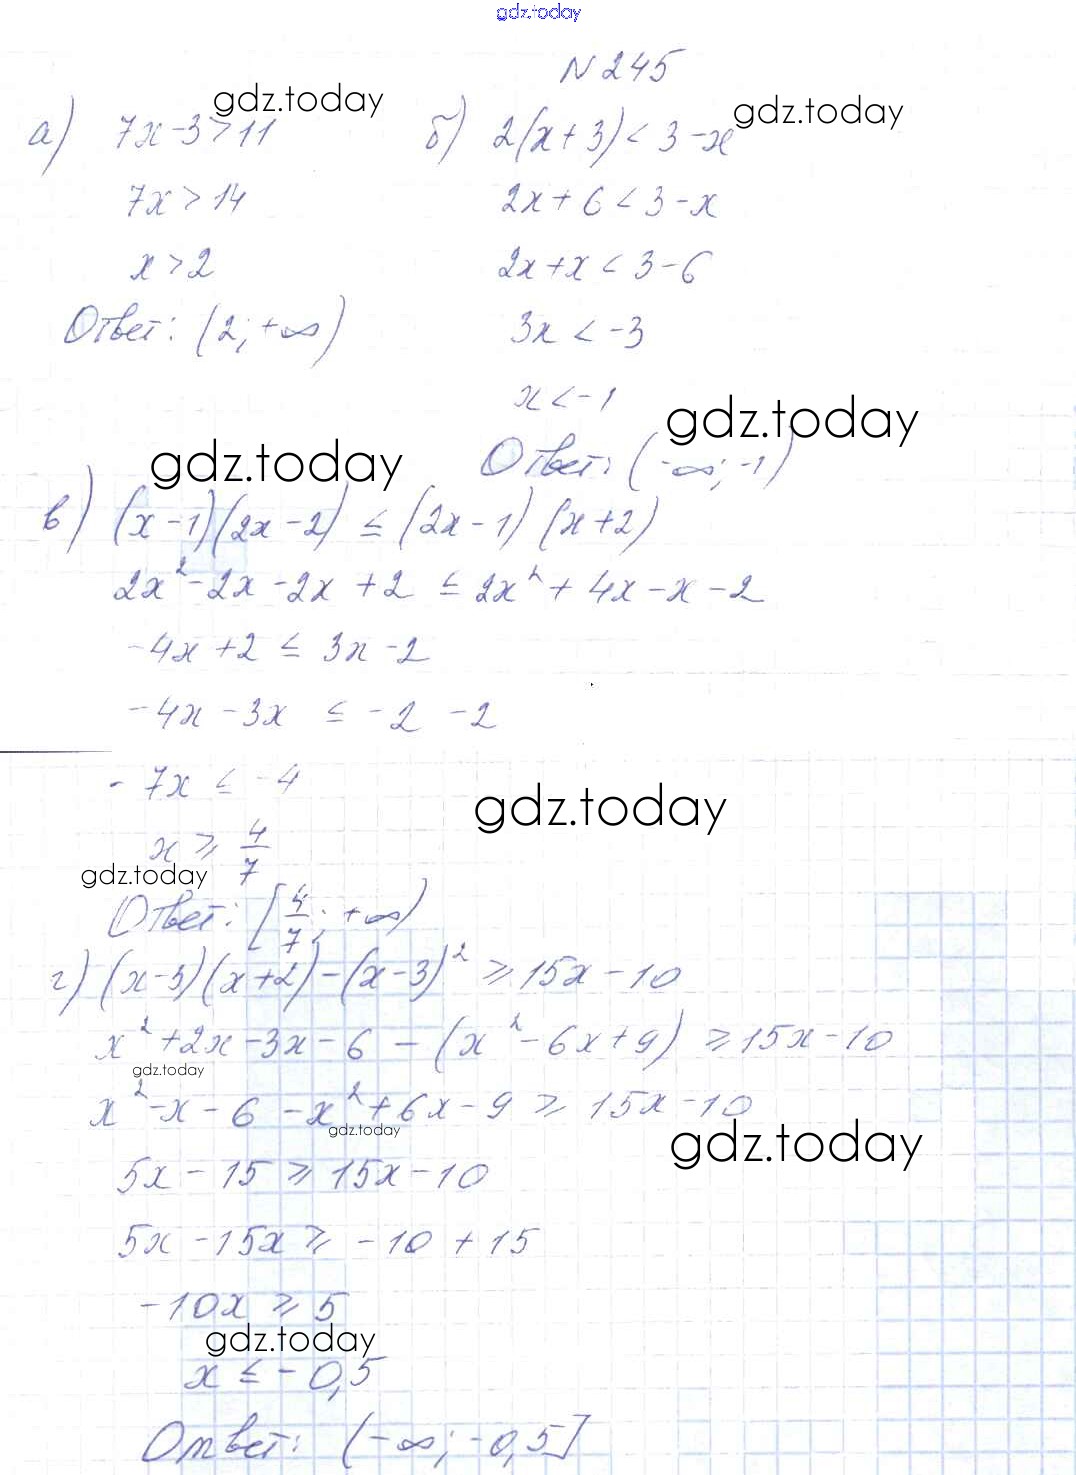 gdz.today
N 245
gdz.today
gdz.today
а) 7x - 3 > 11
7x > 14
x > 2
Ответ: (2; +∞)
б) 2(x + 3) < 3 - x
2x + 6 < 3 - x
2x + x < 3 - 6
3x < -3
x < -1
gdz.today
Ответ: (-∞; -1)
gdz.today
в) (x - 1)(2x - 2) ≤ (2x - 1)(x + 2)
2x² - 2x - 2x + 2 ≤ 2x² + 4x - x - 2
-4x + 2 ≤ 3x - 2
-4x - 3x ≤ -2 - 2
-7x ≤ -4
gdz.today
x ≥ 4/7
gdz.today
Ответ: [4/7; +∞)
г) (x - 3)(x + 2) - (x - 3)² ≥ 15x - 10
x² + 2x - 3x - 6 - (x² - 6x + 9) ≥ 15x - 10
gdz.today
x² - x - 6 - x² + 6x - 9 ≥ 15x - 10
gdz.today
gdz.today
5x - 15 ≥ 15x - 10
5x - 15x ≥ -10 + 15
-10x ≥ 5
gdz.today
x ≤ -0,5
Ответ: (-∞; -0,5]